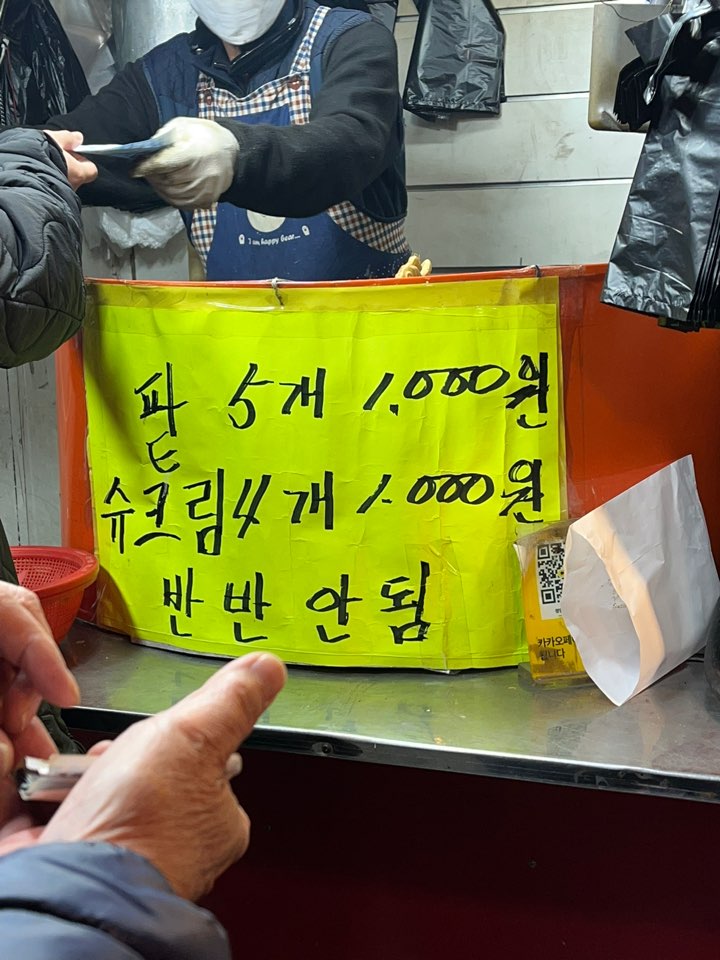 I am happy bear...
팥 5개 1.000원
슈크림 4개 1.000원
반반 안됨
카카오페
됩니다